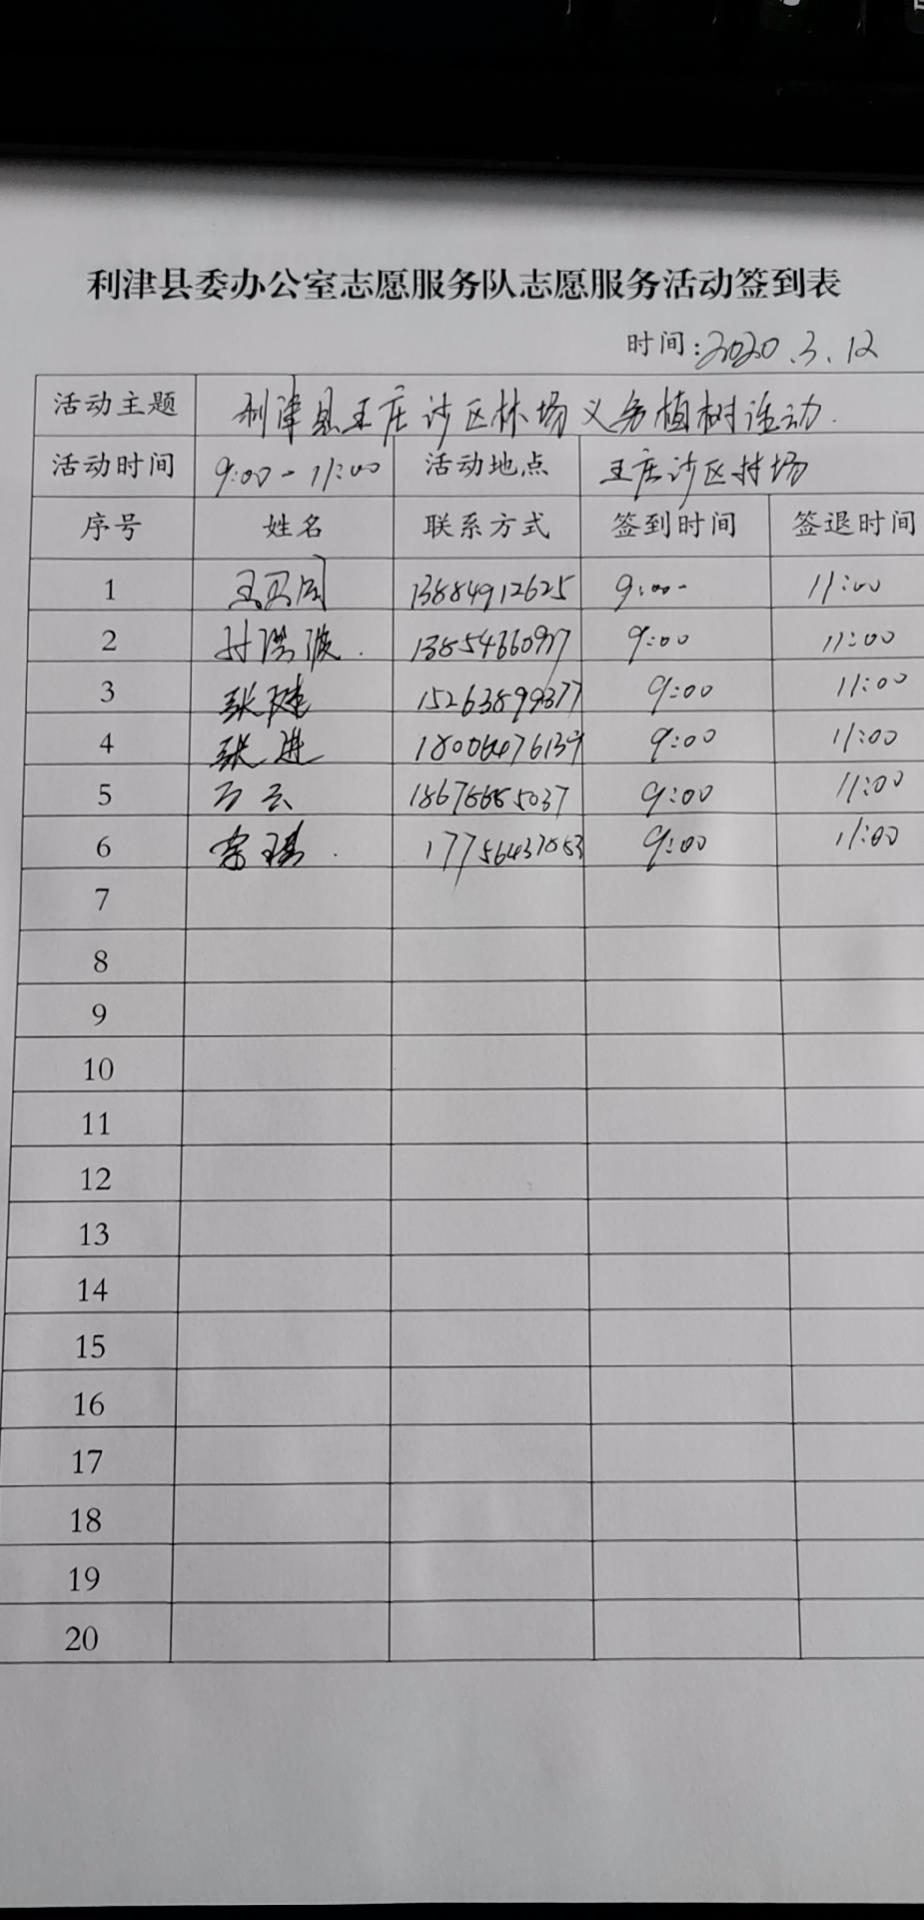 利津县委办公室志愿服务队志愿服务活动签到表
时间:2020.3.12
活动主题 利津县王庄沙区林场义务植树活动.
活动时间 9:00-11:00 活动地点 王庄沙区林场
序号 姓名 联系方式 签到时间 签退时间
1 13884912625 9:00 11:00
2 9:00 11:00
3 张建 15263899377 9:00 11:00
4 张进 18006476139 9:00 11:00
5 9:00 11:00
6 9:00 11:00
7
8
9
10
11
12
13
14
15
16
17
18
19
20